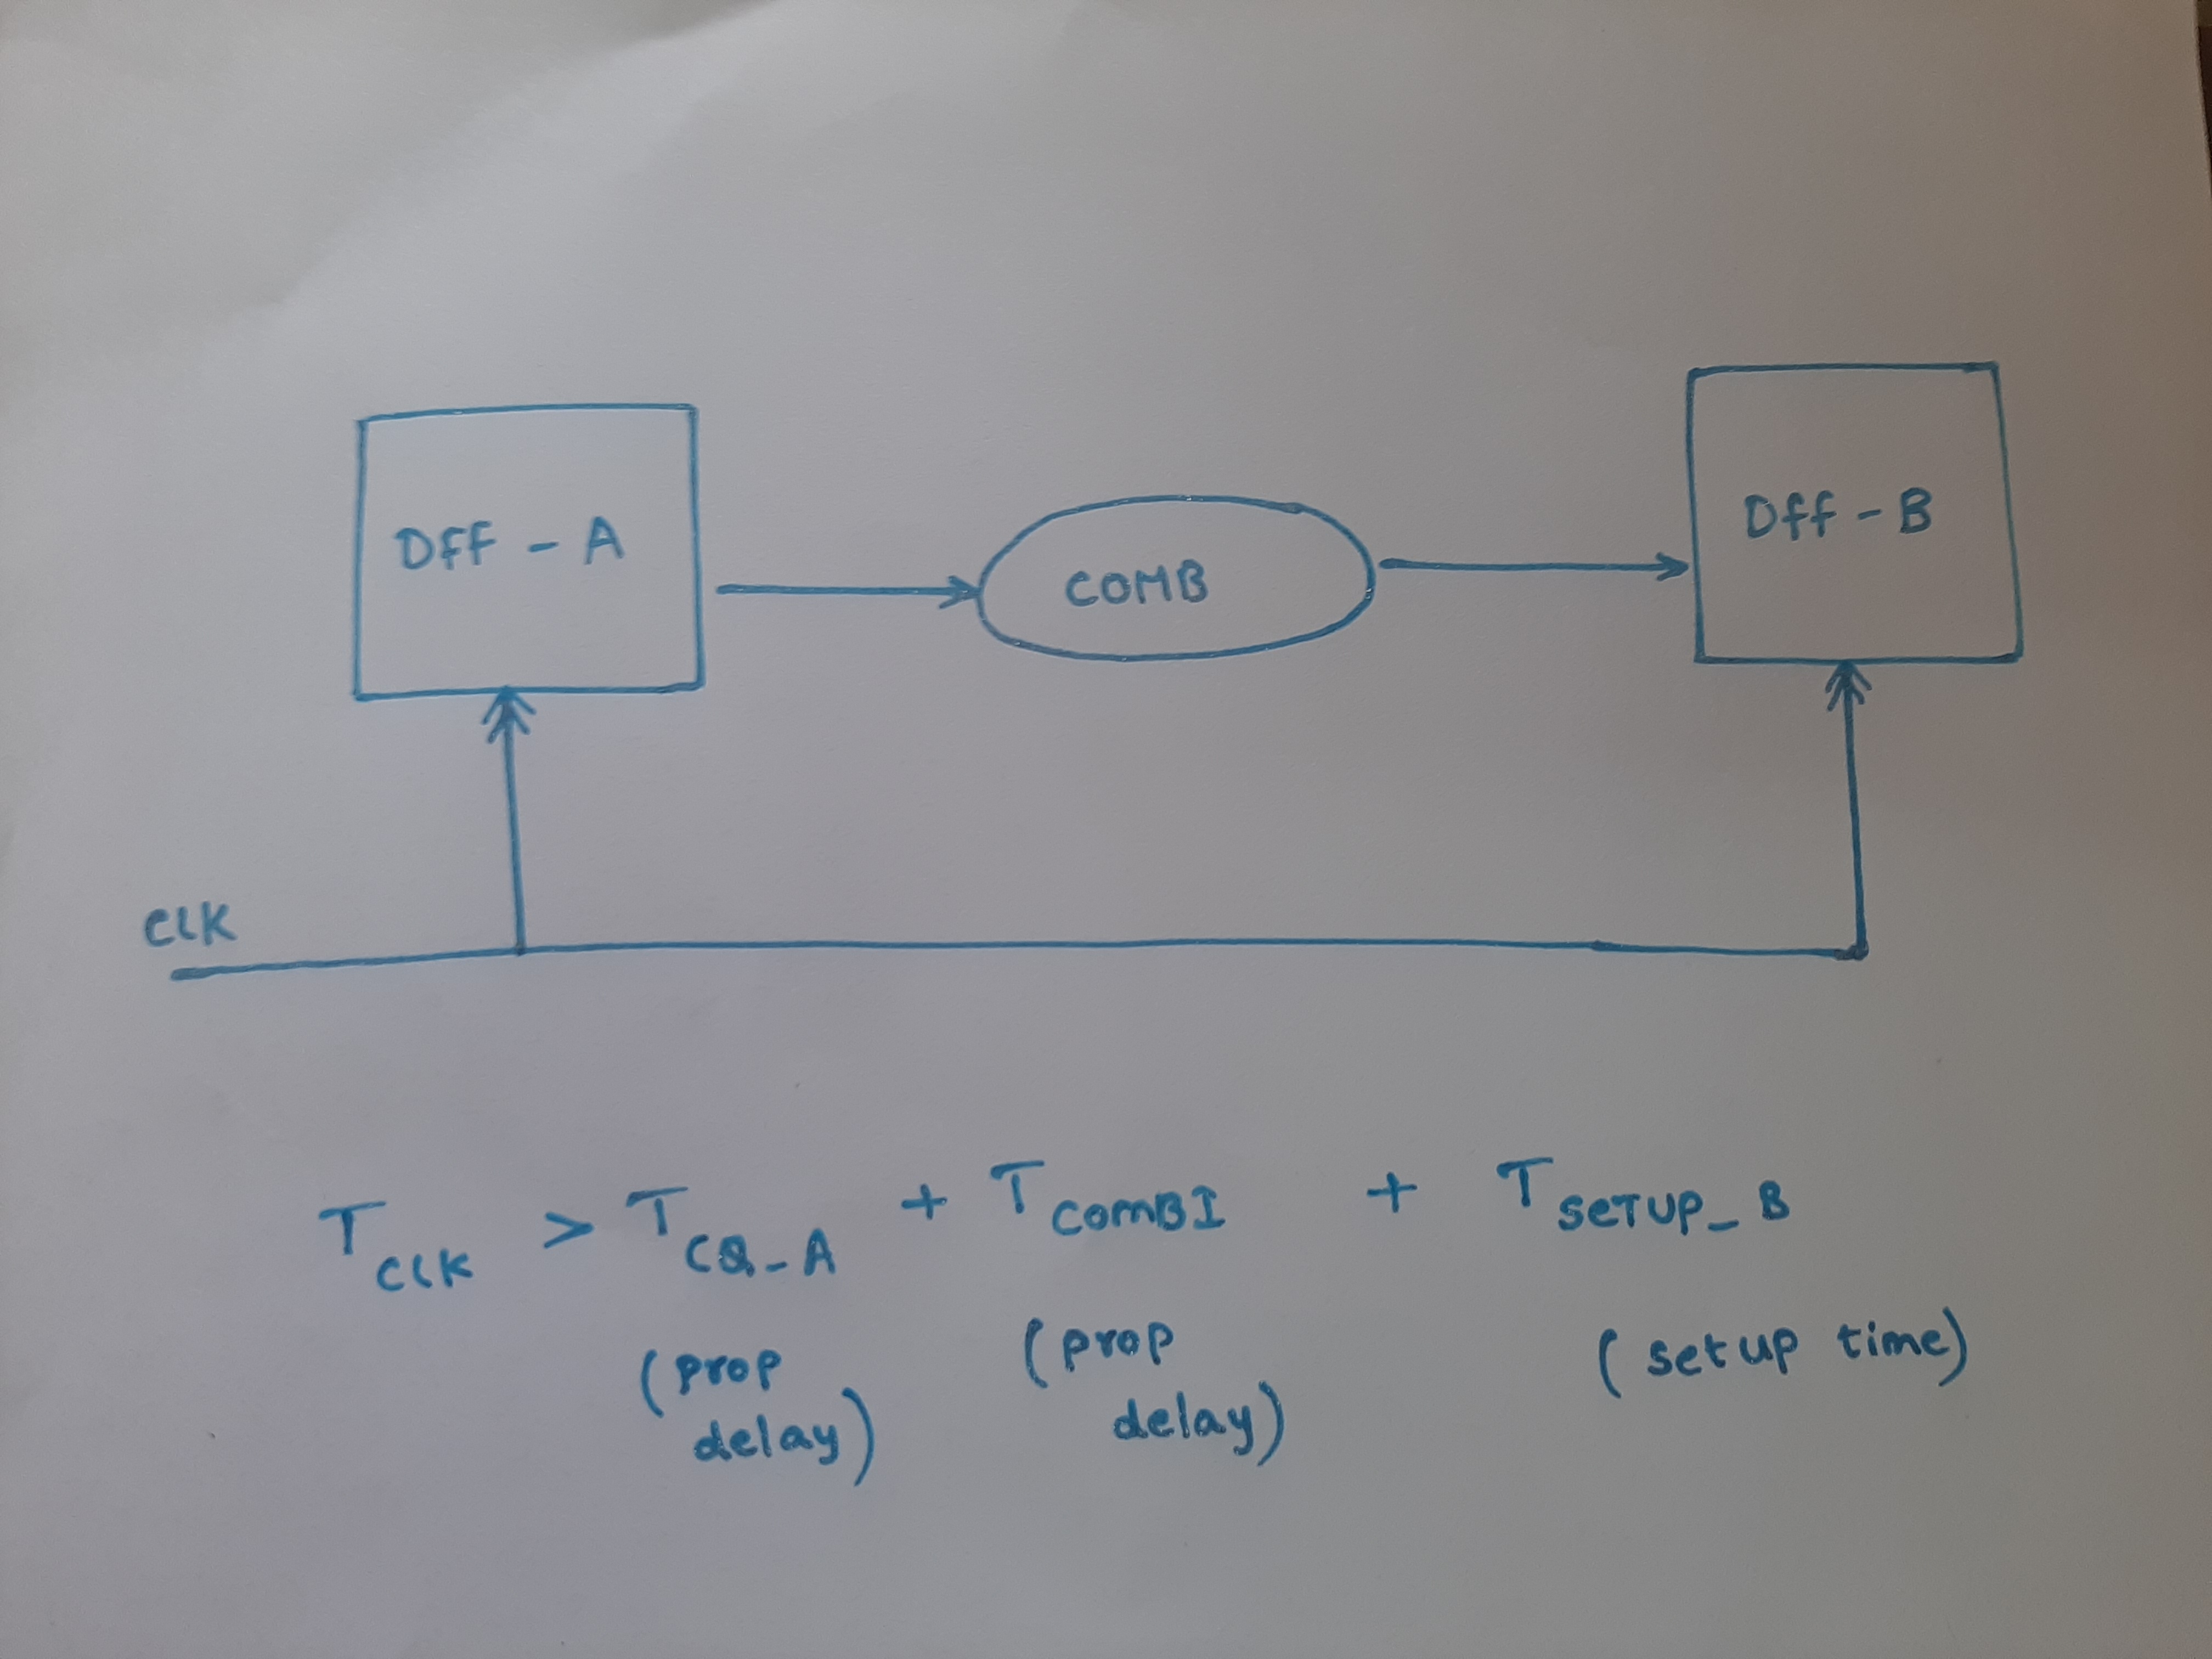 Dff - A
COMB
Dff - B
CLK
T CLK > T CQ_A + T COMBI + T SETUP_B
(prop delay) (prop delay) (setup time)